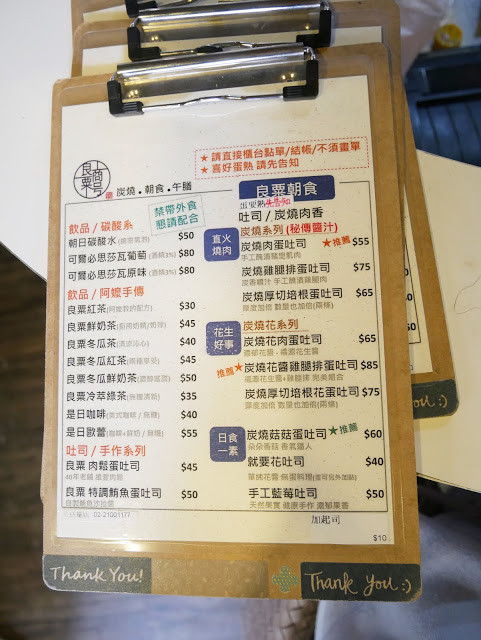 ★ 請直接櫃台點單/結帳/不須畫單
★ 喜好蛋熟 請先告知
良粟
商号
炭燒．朝食．午膳
禁帶外食
懇請配合
飲品 / 碳酸系
朝日碳酸水 $50
可爾必思莎瓦葡萄 $80
可爾必思莎瓦原味 $80
飲品 / 阿嬤手傳
良粟紅茶 $30
良粟鮮奶茶 $45
良粟冬瓜茶 $40
良粟冬瓜紅茶 $45
良粟冬瓜鮮奶茶 $50
良粟冷萃綠茶 $35
是日咖啡 $40
是日歐蕾 $55
吐司 / 手作系列
良粟 肉鬆蛋吐司 $45
良粟 特調鮪魚蛋吐司 $50
02-21001177
良粟朝食
蛋要熟先告知
吐司 / 炭燒肉香
直火
燒肉
炭燒系列 (秘傳醬汁)
炭燒肉蛋吐司 ★推薦 $55
手工醃漬豬里肌肉
炭燒雞腿排蛋吐司 $75
炭燒厚切培根蛋吐司 $65
厚度加倍 數量也加倍(兩條)
花生
好事
炭燒花系列
炭燒花肉蛋吐司 $65
推薦★ 炭燒花醬雞腿排蛋吐司 $85
炭燒厚切培根花蛋吐司 $75
厚度加倍 數量也加倍(兩條)
日食
一素
炭燒菇菇蛋吐司 ★推薦 $60
就要花吐司 $40
手工藍莓吐司 $50
天然果實 健康手作 濃郁果香
加起司
$10
Thank You!
Thank You :)